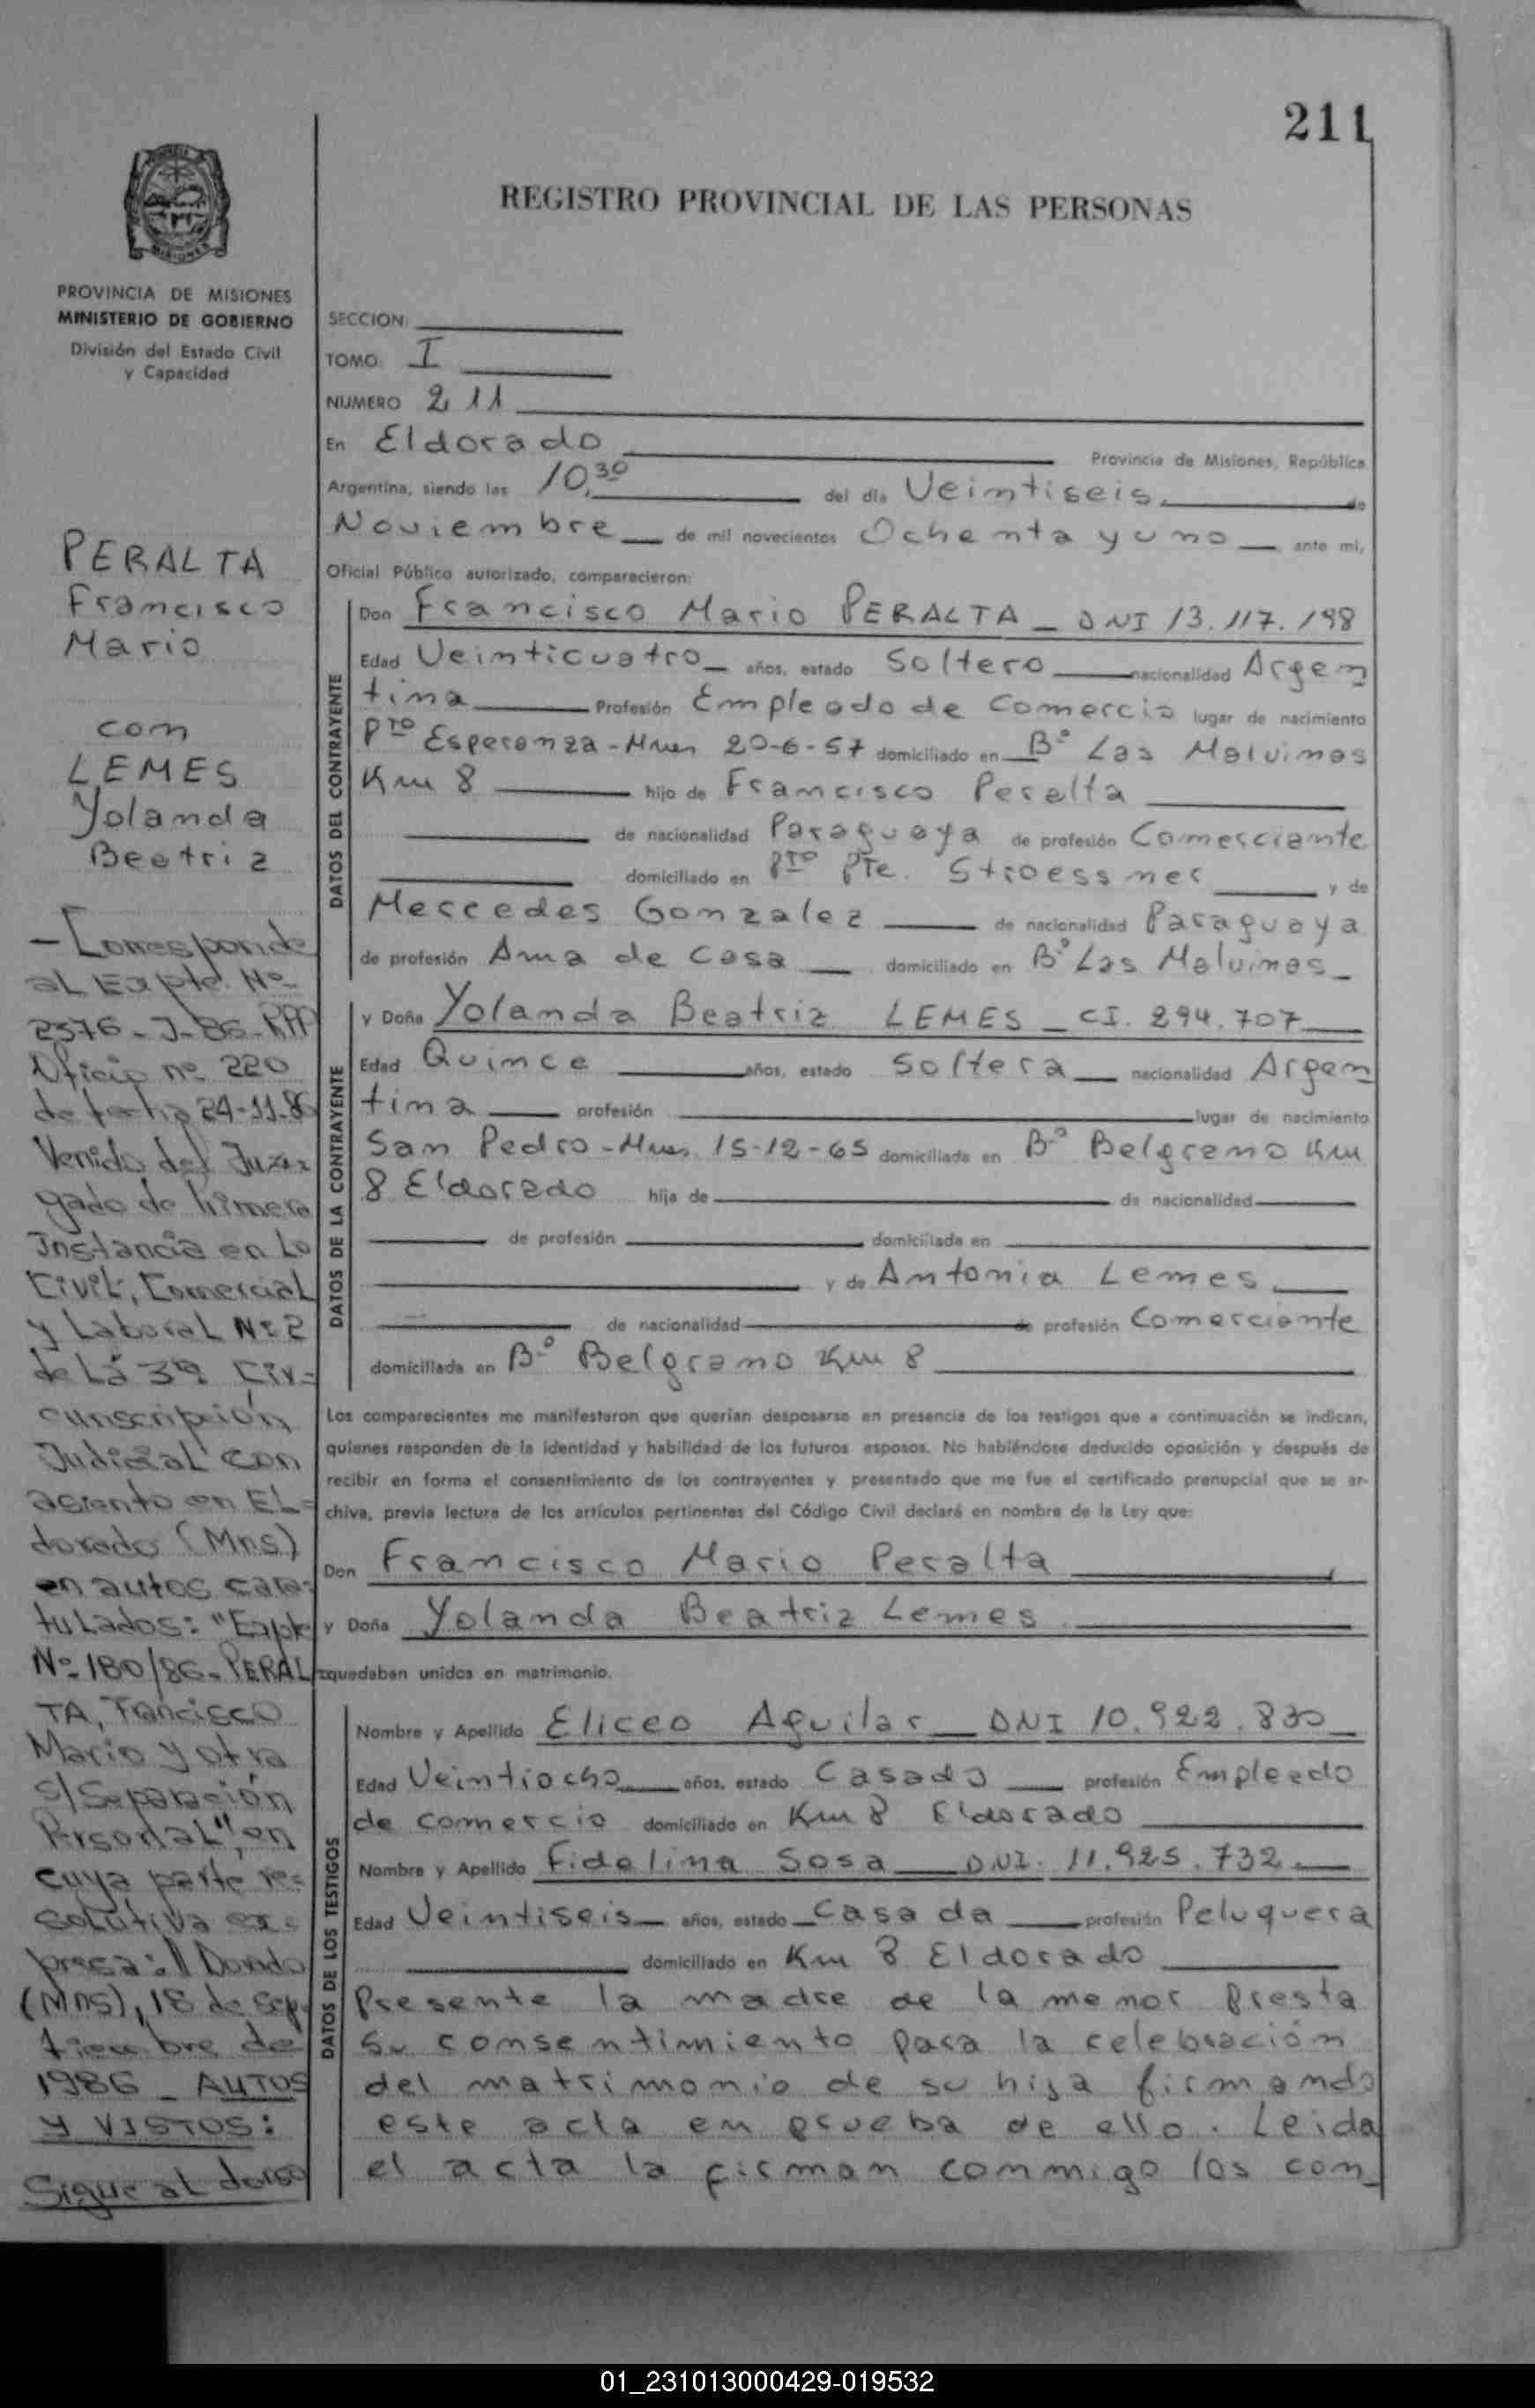 211
REGISTRO PROVINCIAL DE LAS PERSONAS
PROVINCIA DE MISIONES
MINISTERIO DE GOBIERNO
División del Estado Civil
y Capacidad
PERALTA
Francisco
Mario
con
LEMES
Yolanda
Beatriz
- Corresponde
al Expte. Nº
2376-J-86-RPP
Oficio nº 220
de fecha 24-11-86
Venido del Juz-
gado de Primera
Instancia en lo
Civil, Comercial
y Laboral Nº 2
de la 3ª Cir=
cunscripción
Judicial con
asiento en El=
dorado (Mns)
en autos cara=
tulados: "Expte
Nº 180/86- PERAL
TA, Francisco
Mario y otra
s/ Separación
Personal", en
cuya parte re=
solutiva ex=
presa: // Dorado
(Mns), 18 de Sep-
tiembre de
1986 - AUTOS
Y VISTOS:
Sigue al dorso
SECCION:
TOMO: I
NUMERO 211
En Eldorado Provincia de Misiones, República
Argentina, siendo las 10,30 del día Veintiseis de
Noviembre de mil novecientos Ochenta y uno ante mí,
Oficial Público autorizado, comparecieron:
DATOS DEL CONTRAYENTE
Don Francisco Mario PERALTA - DNI 13.117.198
Edad Veinticuatro años, estado Soltero nacionalidad Argen
tina Profesión Empleado de Comercio lugar de nacimiento
Pto Esperanza - Mnes 20-6-57 domiciliado en Bº Las Malvinas
Km 8 hijo de Francisco Peralta
de nacionalidad Paraguaya de profesión Comerciante
domiciliado en Pto Pte. Stroessner y de
Mercedes Gonzalez de nacionalidad Paraguaya
de profesión Ama de Casa domiciliado en Bº Las Malvinas
DATOS DE LA CONTRAYENTE
y Doña Yolanda Beatriz LEMES - CI. 294.707
Edad Quince años, estado Soltera nacionalidad Argen
tina profesión lugar de nacimiento
San Pedro - Mnes 15-12-65 domiciliada en Bº Belgrano Km
8 Eldorado hija de de nacionalidad
de profesión domiciliada en
y de Antonia Lemes
de nacionalidad de profesión Comerciante
domiciliada en Bº Belgrano Km 8
Los comparecientes me manifestaron que querían desposarse en presencia de los testigos que a continuación se indican,
quienes responden de la identidad y habilidad de los futuros esposos. No habiéndose deducido oposición y después de
recibir en forma el consentimiento de los contrayentes y presentado que me fue el certificado prenupcial que se ar-
chiva, previa lectura de los artículos pertinentes del Código Civil declaré en nombre de la Ley que:
Don Francisco Mario Peralta
y Doña Yolanda Beatriz Lemes
quedaban unidos en matrimonio.
DATOS DE LOS TESTIGOS
Nombre y Apellido Eliceo Aguilar DNI 10.922.830
Edad Veintiocho años, estado Casado profesión Empleado
de comercio domiciliado en Km 8 Eldorado
Nombre y Apellido Fidelina Sosa DNI. 11.925.732
Edad Veintiseis años, estado Casada profesión Peluquera
domiciliado en Km 8 Eldorado
Presente la madre de la menor presta
su consentimiento para la celebración
del matrimonio de su hija firmando
este acta en prueba de ello. Leida
el acta la firman conmigo los con
01_231013000429-019532